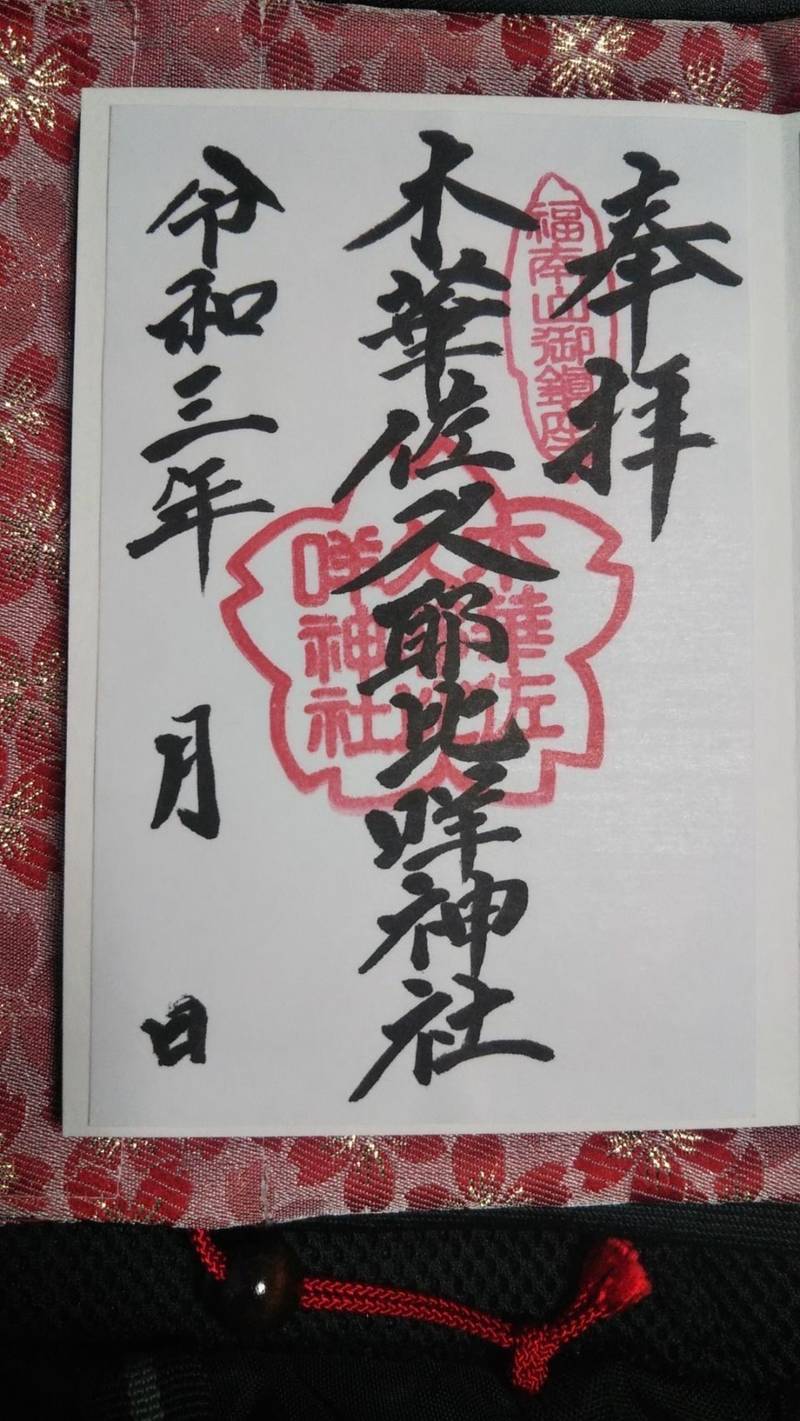 奉拝
福南山御鎮座
木華佐久耶比咩神社
木華佐
久耶比
咩神社
令和三年 月 日